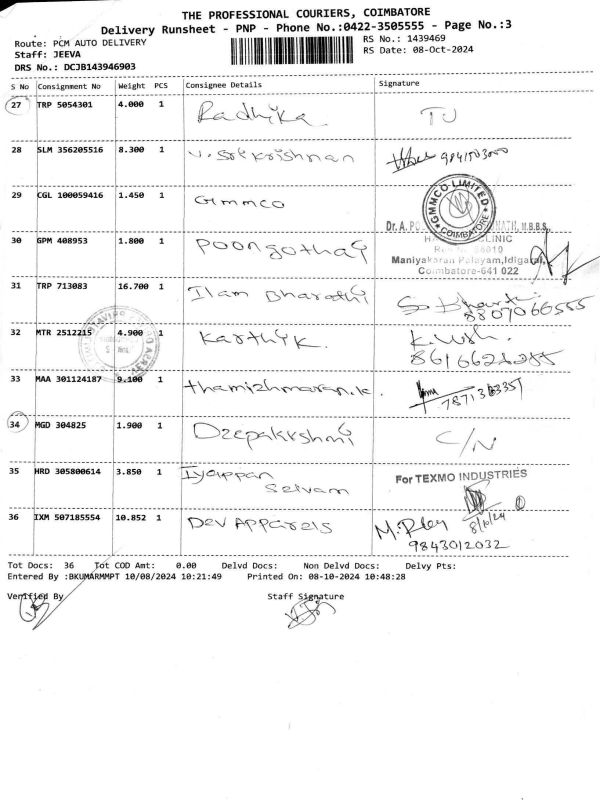 THE PROFESSIONAL COURIERS, COIMBATORE
Delivery Runsheet - PNP - Phone No.:0422-3505555 - Page No.:3
Route: PCM AUTO DELIVERY
RS No.: 1439469
Staff: JEEVA
RS Date: 08-Oct-2024
DRS No.: DCJB143946903
S No Consignment No Weight PCS Consignee Details Signature
27 TRP 5054301 4.000 1 Radhika TU
28 SLM 356205516 8.300 1 V. Sri krishnan
29 CGL 100059416 1.450 1 Gmmco
GMMCO LIMITED
COIMBATORE
Dr. A. M.B.B.S.,
30 GPM 408953 1.800 1 Poongothai
CLINIC
Maniyakaran Palayam, Idigarai,
Coimbatore-641 022
31 TRP 713083 16.700 1 Ilam Bharathi
8807066555
32 MTR 2512215 4.900 1 Karthik.
33 MAA 301124187 9.100 1 thamizhmaran.k.
34 MGD 304825 1.900 1 Deepalakshmi C/N
35 HRD 305800614 3.850 1 Iyappan
Selvam
For TEXMO INDUSTRIES
8/10/24
36 IXM 507185554 10.852 1 Dev Apparels
9843012032
Tot Docs: 36 Tot COD Amt: 0.00 Delvd Docs: Non Delvd Docs: Delvy Pts:
Entered By :BKUMARMMPT 10/08/2024 10:21:49 Printed On: 08-10-2024 10:48:28
Verified By Staff Signature